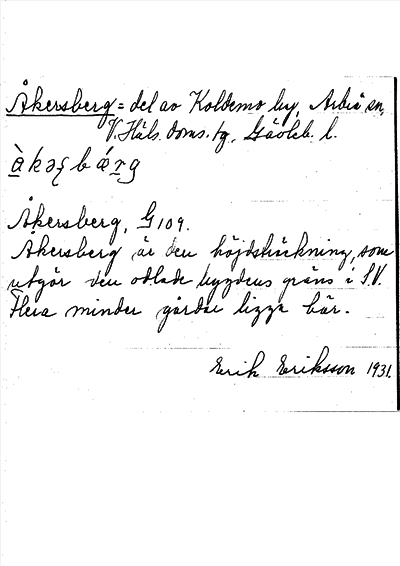 Åkersberg = del av Koldemo by, Arbrå sn,
V. Häls. doms. tg, Gävleb. l.
Åkersberg, G 109.
Åkersberg är den höjdsträckning, som
utgör den odlade bygdens gräns i S.V.
Flera mindre gårdar ligga här.
Erik Eriksson 1931.